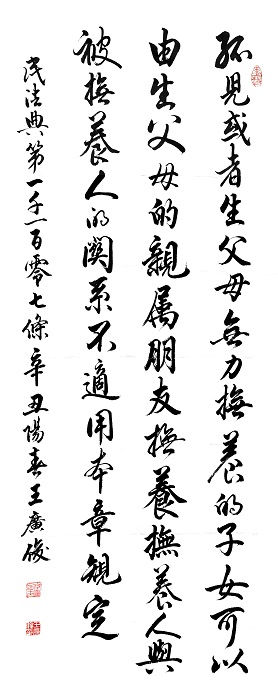 孤兒或者生父母無力撫養的子女可以
由生父母的親屬朋友撫養撫養人與
被撫養人的關系不適用本章規定
民法典第一千一百零七條辛丑陽春王廣俊